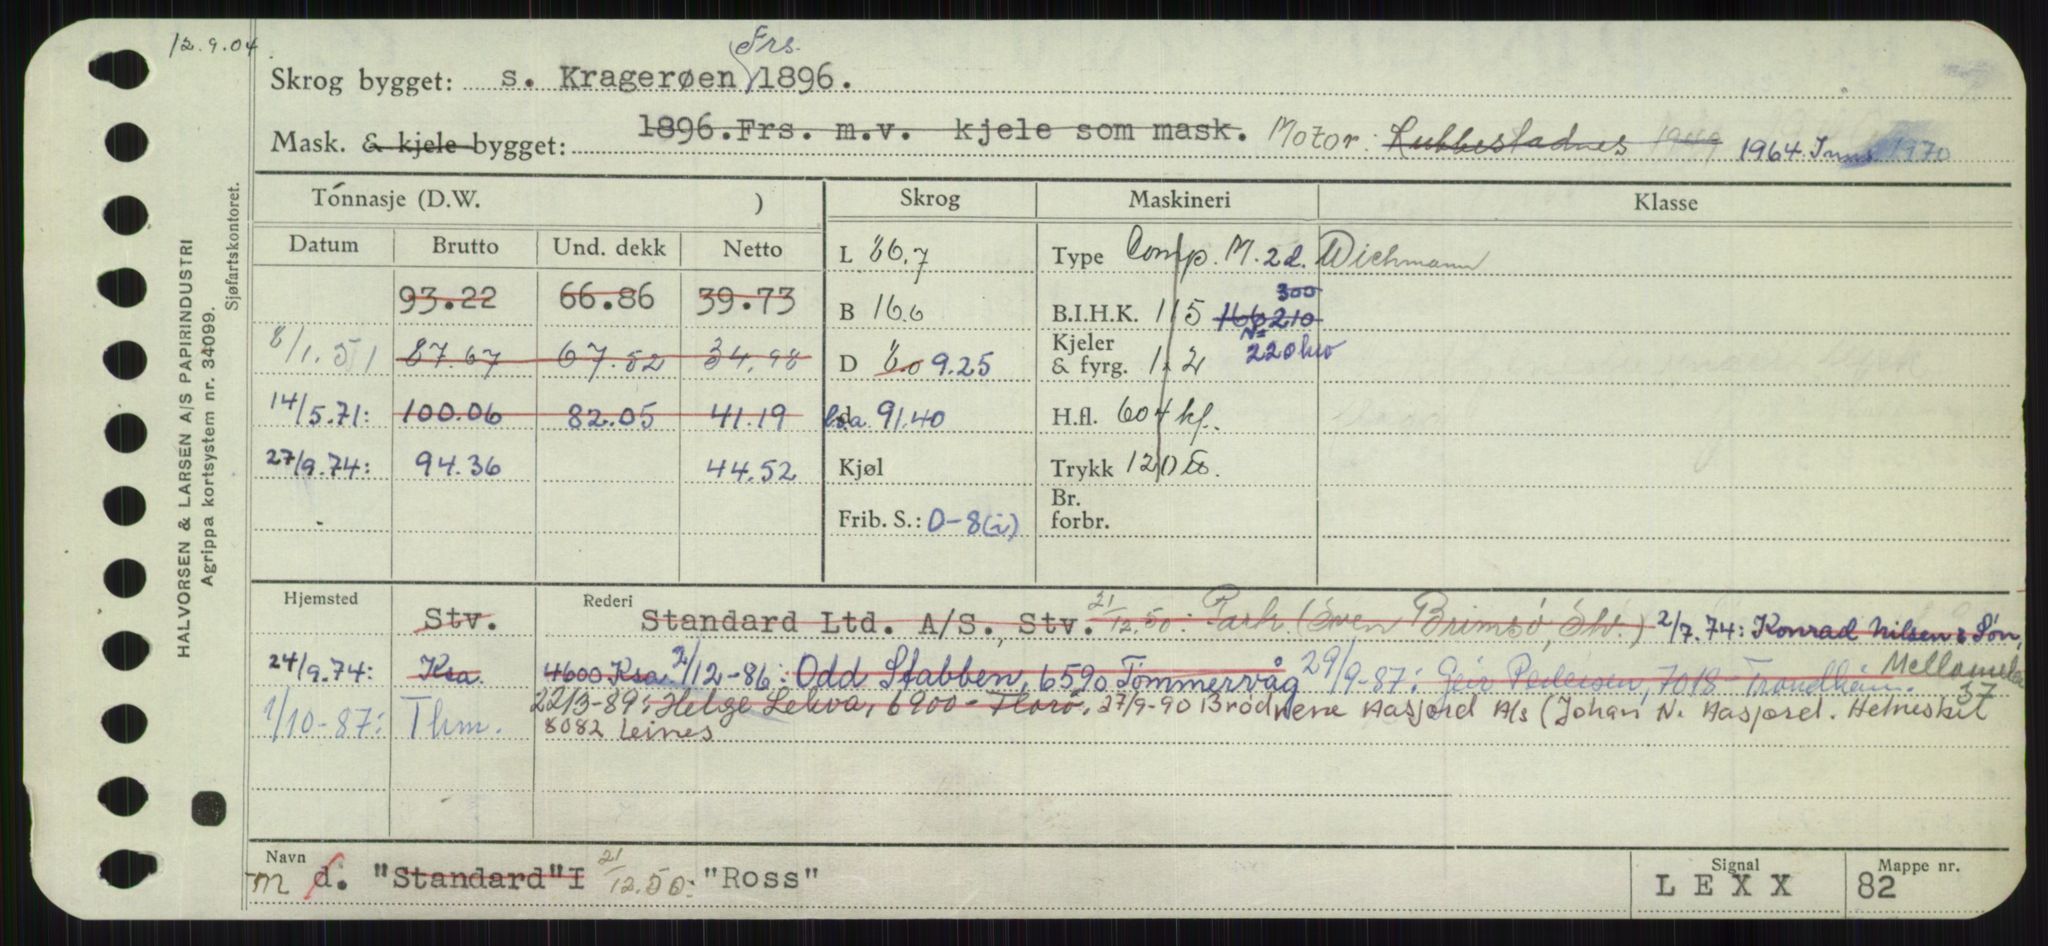 12.9.04
Frs.
Skrog bygget: s. Kragerøen 1896.
Mask. & kjele bygget: 1896. Frs. m.v. kjele som mask. Motor: 1949 1964 1970
HALVORSEN & LARSEN A/S PAPIRINDUSTRI
Agrippa kortsystem nr. 34099.
Sjøfartskontoret.
Tonnasje (D.W. ) Skrog Maskineri Klasse
Datum Brutto Und. dekk Netto
L 86.7 Type Comp. M. 2 d. Wichmann
93.22 66.86 39.73
B 16.6 B.I.H.K. 115 166 210 300
N=
220 hv
8/1.51 87.67 67.52 34.98
D 8.0 9.25 Kjeler & fyrg. 1. 2
14/5.71: 100.06 82.05 41.19
l.o.a. 91.40 H.fl. 604 kf.
27/9.74: 94.36 44.52
Kjøl Trykk 120 lb.
Frib. S.: D-8(i) Br. forbr.
Hjemsted Stv. Rederi Standard Ltd. A/S., Stv. 21/12.50: (Sven Brimsø, Stv.) 2/7.74: Konrad Nilsen & Søn,
24/9.74: Ksa. 4600 Ksa. /12-86: Odd Stabben, 6590 Tømmervåg 29/9-87: Geir Pedersen, 7018 Trondheim. 37
1/10-87: Thm. 22/3-89: Helge Lekva, 6900 - Florø, 27/9-90 Brødrene Aasjord A/s (Johan N. Aasjord. Helnesket
8082 Leines
Navn m d. "Standard" I 21/12.50: "Ross"
Signal L E X X
Mappe nr. 82